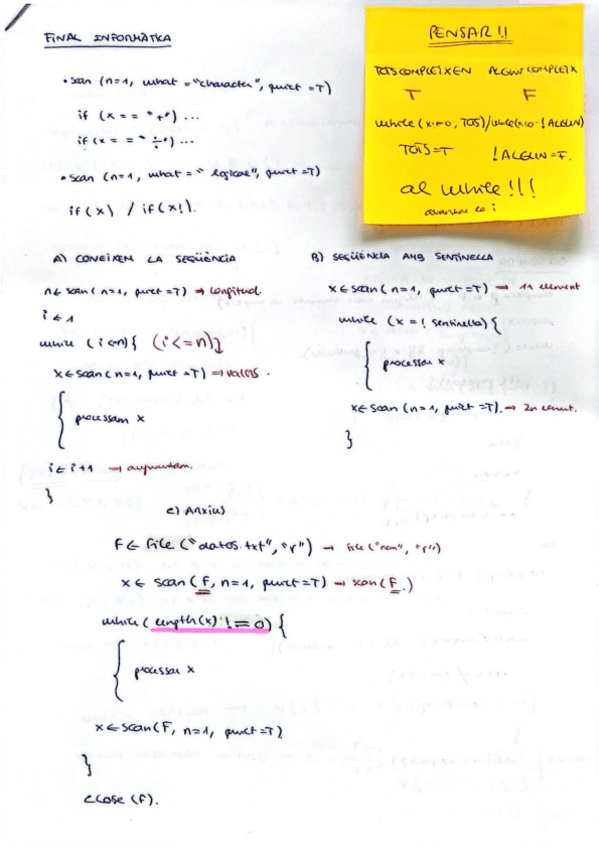 FINAL INFORMÀTICA
• scan (n=1, what = "character", quiet =T)
if (x == "+") ...
if (x == "÷") ...
• scan (n=1, what = " logical", quiet =T)
if(x) / if(x!).
PENSAR!!
TOTS COMPLEIXEN ALGUN COMPLEIX
T F
while(x!=0, TOTS)/while(x!=0 - !ALGUN)
TOTS=T !ALGUN=F.
al while!!!
avançar la i
A) CONEIXEM LA SEQÜÈNCIA
n← scan (n=1, quiet =T) → longitud.
i ← 1
while (i<=n){ (i<=n)
x←scan(n=1, quiet =T) → valors.
processam x
i← i+1 → augmentam.
}
B) SEQÜÈNCIA AMB SENTINELLA
x← scan (n=1, quiet =T) → 1r element
while (x =! sentinella) {
processar x
x← scan (n=1, quiet =T). → 2n element.
}
C) ARXIUS
F← file ("datos.txt", "r") → file ("nom", "r")
x ← scan (F, n=1, quiet =T) → scan(F.)
while (length(x) != 0) {
processar x
x←scan(F, n=1, quiet =T)
}
close (F).